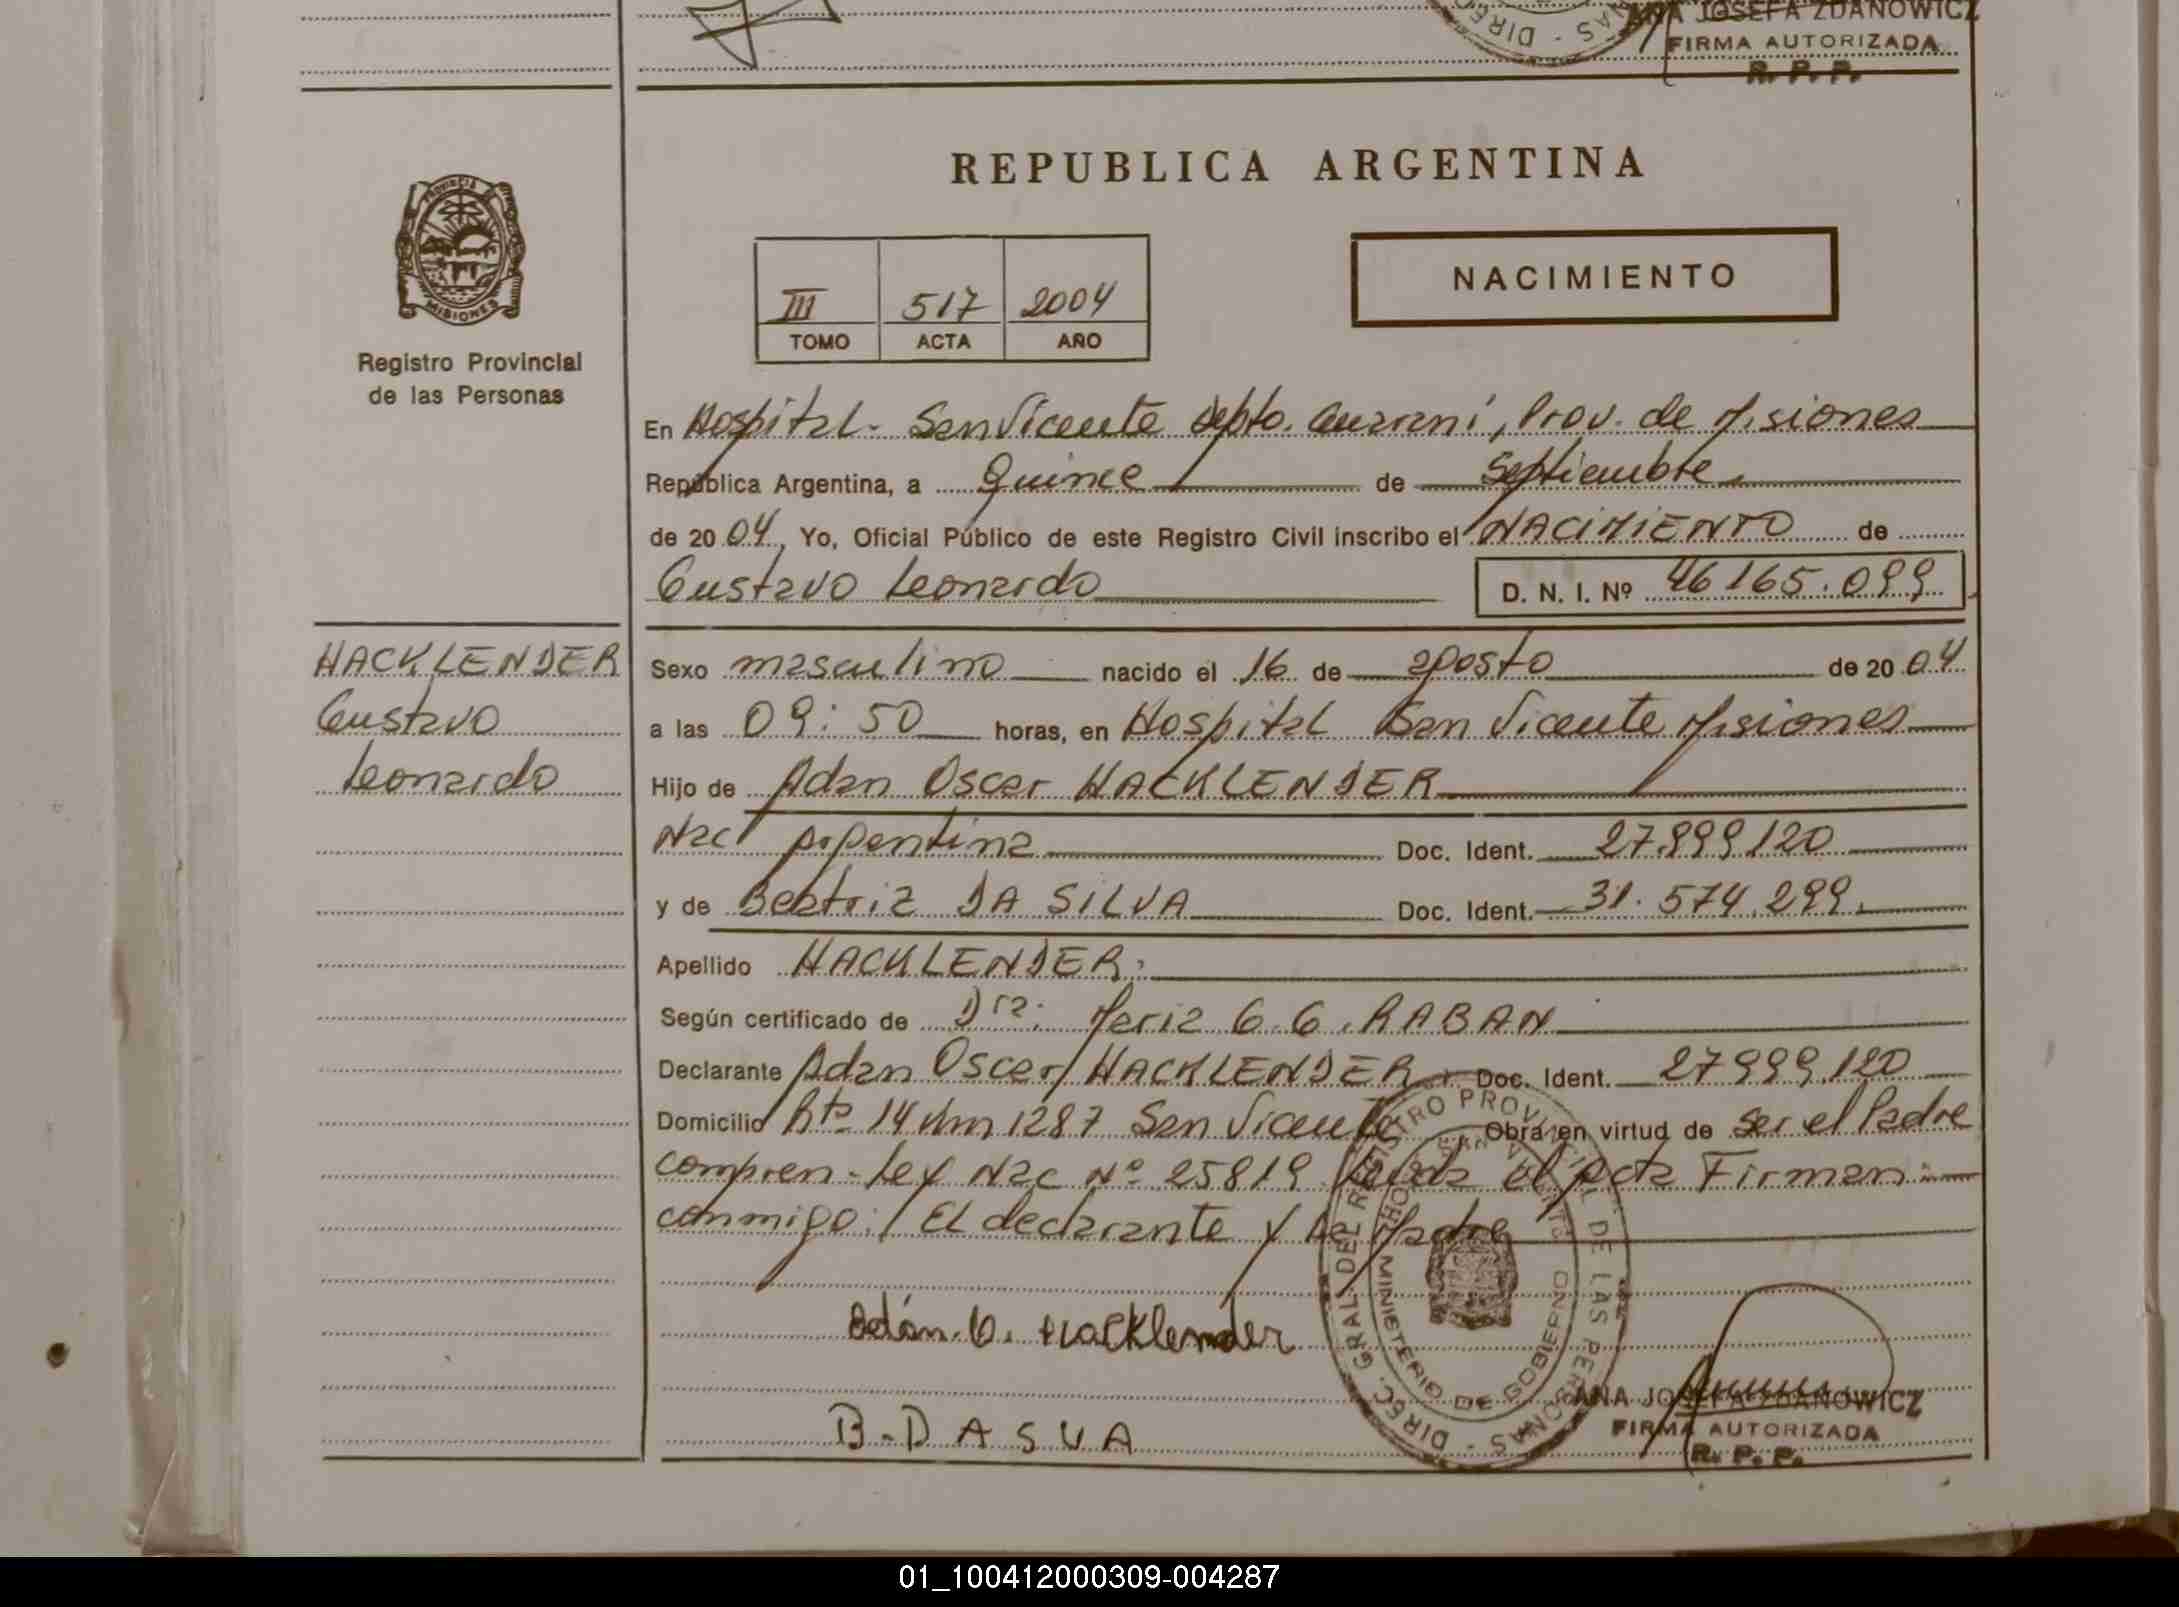 ANA JOSEFA ZDANOWICZ
FIRMA AUTORIZADA
R. P. P.
PROVINCIA
MISIONES
Registro Provincial
de las Personas
REPUBLICA ARGENTINA
III 517 2004
TOMO ACTA AÑO
NACIMIENTO
En Hospital - San Vicente depto. Guarani, Prov. de Misiones
República Argentina, a Quince de Septiembre
de 2004, Yo, Oficial Público de este Registro Civil inscribo el NACIMIENTO de
Gustavo Leonardo D. N. I. Nº 46165.099
HACKLENDER
Gustavo
Leonardo
Sexo masculino nacido el 16 de agosto de 2004
a las 09:50 horas, en Hospital San Vicente Misiones
Hijo de Adan Oscar HACKLENDER
Nac Argentina Doc. Ident. 27.999.120
y de Beatriz DA SILVA Doc. Ident. 31.574.299
Apellido HACKLENDER
Según certificado de Dra. Maria G. G. RABAN
Declarante Adan Oscar HACKLENDER Doc. Ident. 27999.120
Domicilio Rta 14 Km 1287 San Vicente Obra en virtud de ser el Padre
compren - Ley Nac Nº 25819 Leida el Acta Firman:
conmigo: El declarante y La Madre
Adán O. Hacklender
B-DASVA
DIREC. GRAL. DEL REGISTRO PROVINCIAL DE LAS PERSONAS
MINISTERIO DE GOBIERNO
ANA JOSEFA ZDANOWICZ
FIRMA AUTORIZADA
R. P. P.
01_100412000309-004287